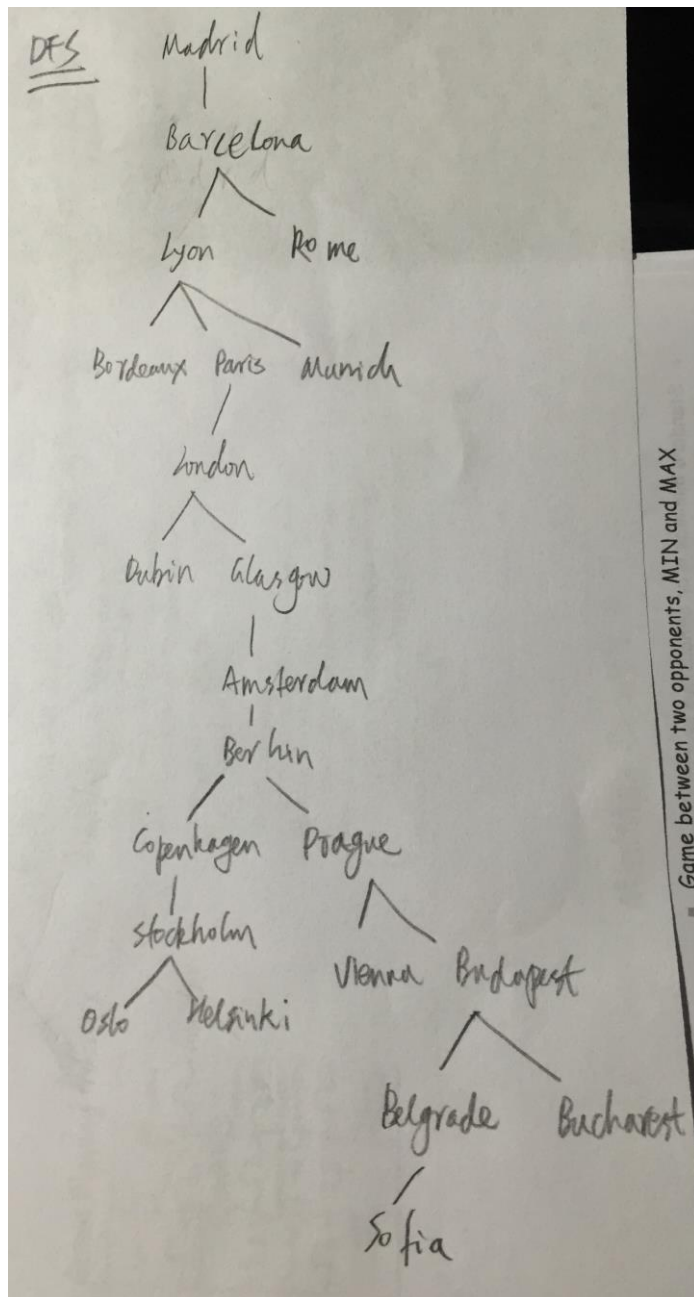 DFS Madrid
Barcelona
Lyon Rome
Bordeaux Paris Munich
London
Dubin Glasgow
Amsterdam
Berlin
Copenhagen Prague
Stockholm
Vienna Budapest
Oslo Helsinki
Belgrade Bucharest
Sofia
Game between two opponents, MIN and MAX